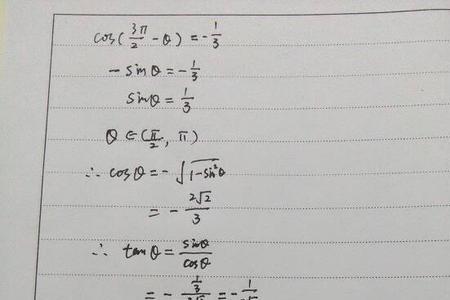 cos(3π/2 - θ) = -1/3
- sinθ = -1/3
sinθ = 1/3
θ ∈ (π/2, π)
∴ cosθ = -√(1-sin²θ)
= - 2√2/3
∴ tanθ = sinθ/cosθ
= - (1/3)/